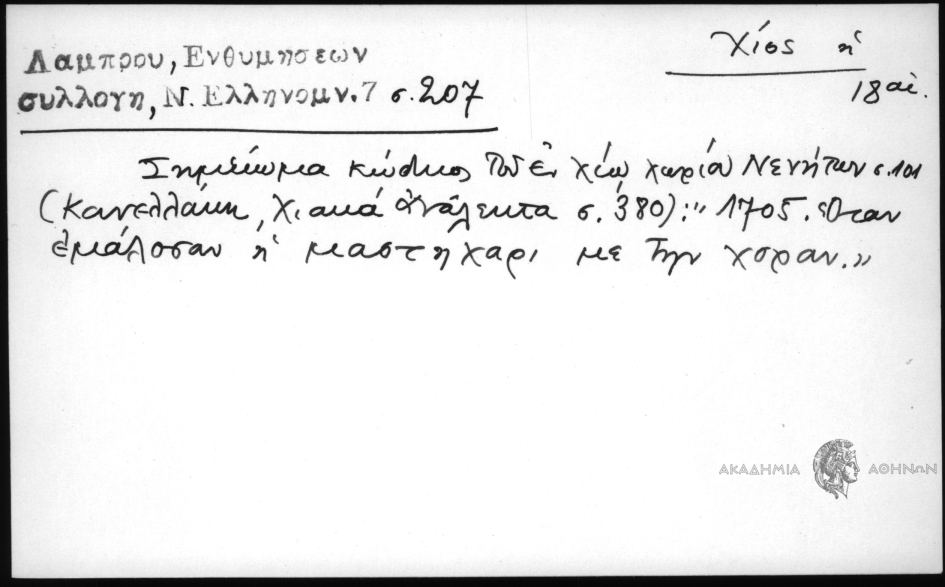 Λαμπρου, Ενθυμησεων
συλλογη, Ν. Ελληνομν. 7 σ. 207
Χίος ἡ
18 αἰ.
Σημείωμα κώδικος τοῦ ἐν Χίῳ χωρίου Νενήτων σ. 101
(Κανελλάκη, Χιακά Ἀνάλεκτα σ. 380): " 1705. Ὅταν
ἐμάλοσαν ἡ μαστηχαρι με την χοραν."
ΑΚΑΔΗΜΙΑ ΑΘΗΝΩΝ